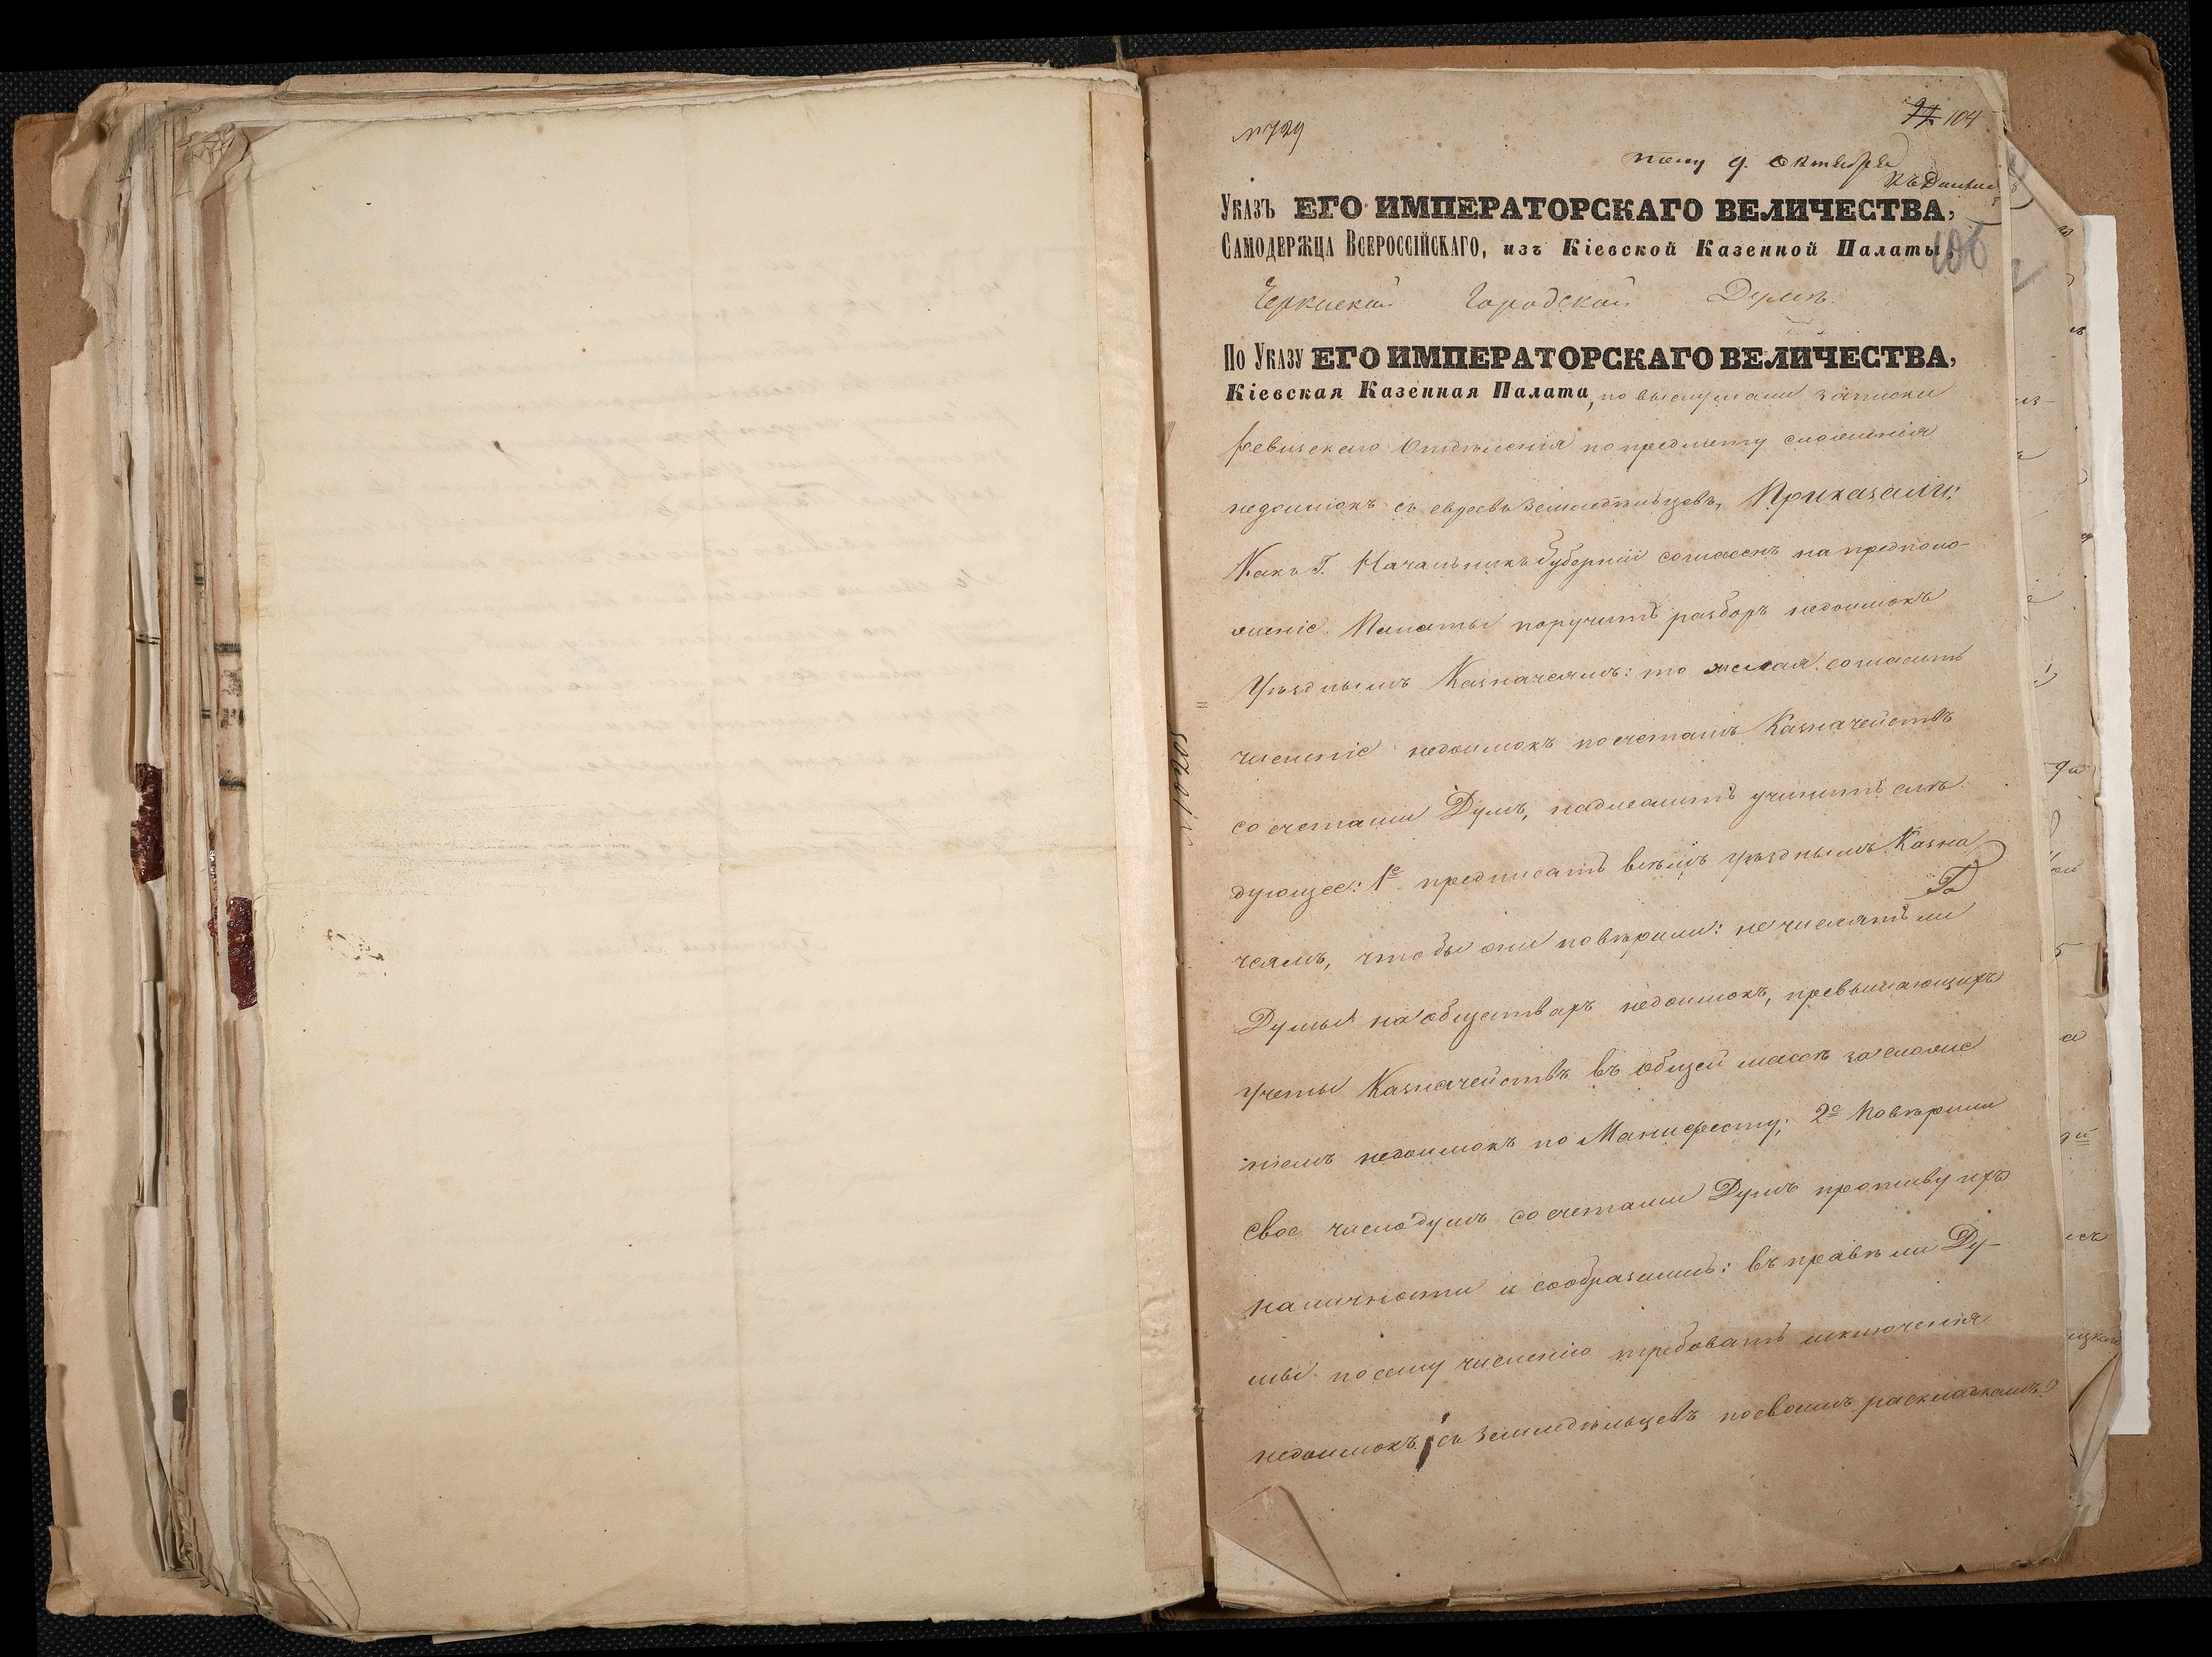 № 729
97 104
пол. 9. Октября
Къ Дѣлу
Указъ ЕГО ИМПЕРАТОРСКАГО ВЕЛИЧЕСТВА,
Самодержца Всероссійскаго, изъ Кіевской Казенной Палаты,
106
Черкаской Городской Думѣ.
По Указу ЕГО ИМПЕРАТОРСКАГО ВЕЛИЧЕСТВА,
Кіевская Казенная Палата, по выслушаніи записки
Ревизскаго Отдѣленія по предмету сложенія
недоимокъ съ евреевъ земледѣльцевъ, Приказали:
Какъ Г. Начальникъ Губерніи согласенъ на предполо-
женіе Палаты поручить разборъ недоимокъ
Уѣзднымъ Казначеямъ: то желая согласить
численіе недоимокъ по счетамъ Казначействъ
со счетами Думъ, надлежитъ учинить слѣ-
дующее: 1е предписать всѣмъ уѣзднымъ Казна
чеямъ, чтобы они повѣрили: не числятъ ли
Гг
Думы на обществахъ недоимокъ, превышающихъ
учеты Казначействъ въ общей массѣ за сложе
ніемъ недоимокъ по Манифесту; 2е Повѣрили
свое число душъ со счетами Думъ противу ихъ
наличности и сообразили: въ правѣ ли Ду-
мы по сему численію требовать исключенія
недоимокъ съ земледѣльцевъ по своимъ раскладкамъ?
№ 10205